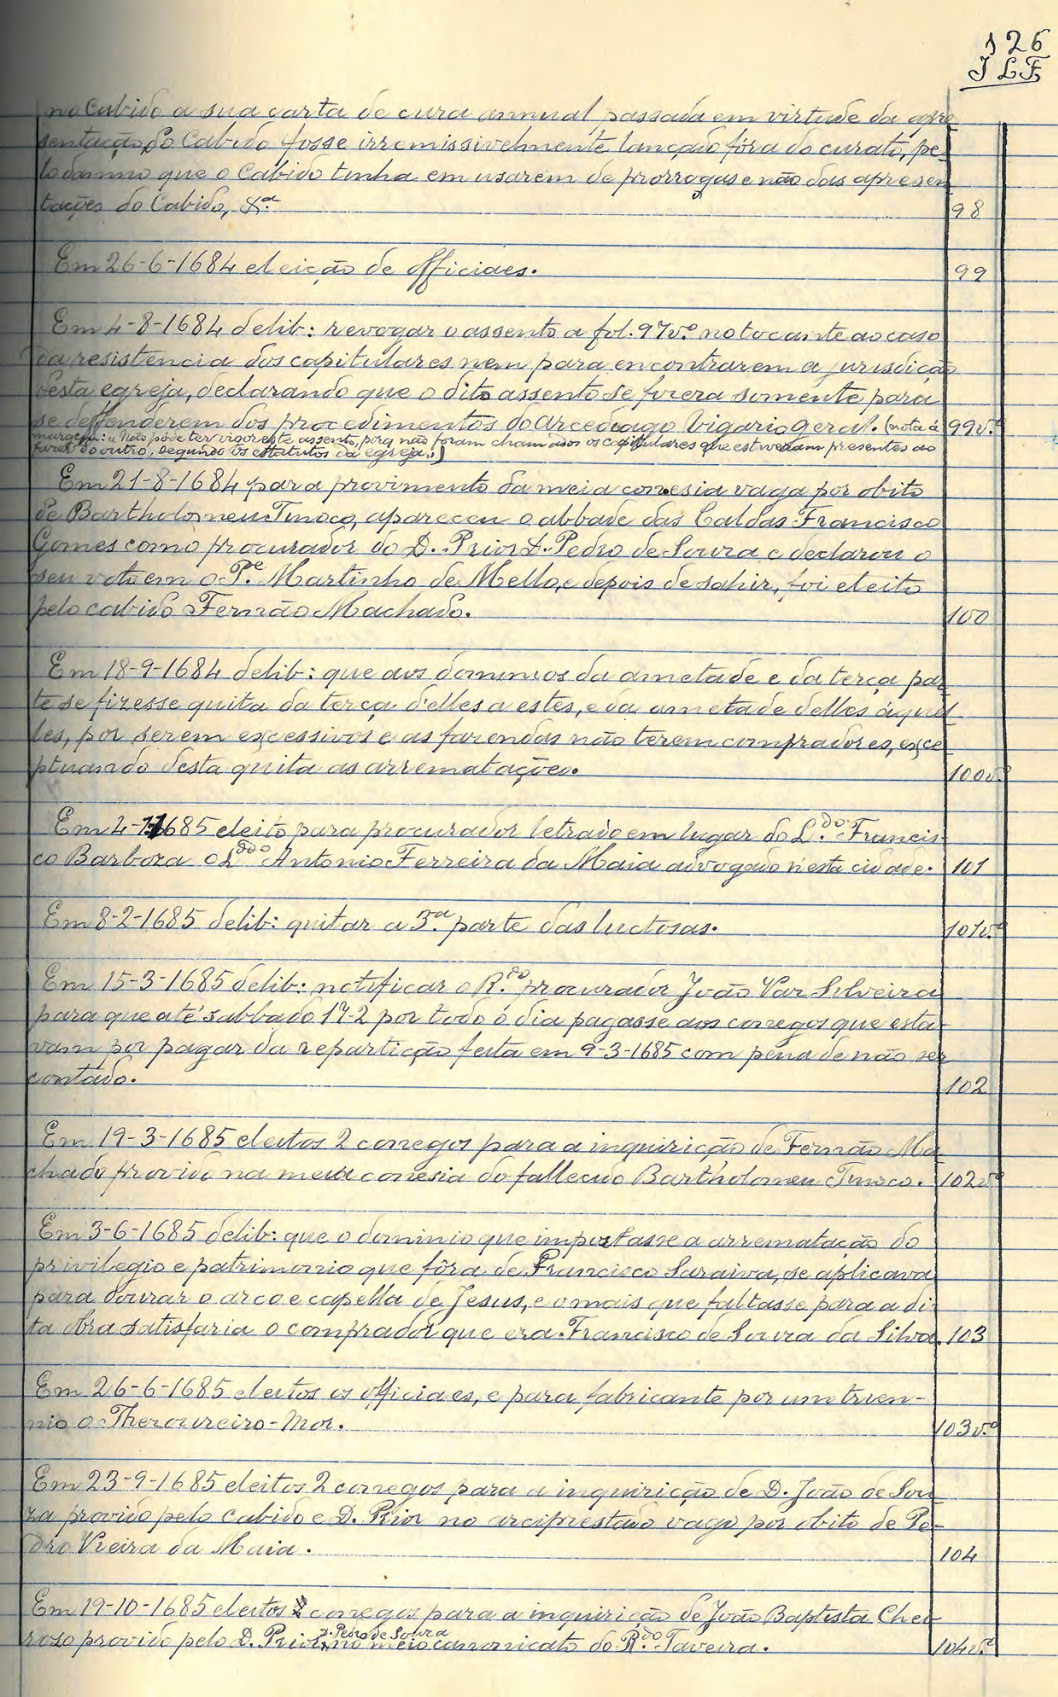 126
J L F
no Cabido a sua carta de cura annual, passada em virtude da apre
sentação do Cabido fosse irremissivelmente lançado fóra do curato, pe-
lo damno que o Cabido tinha em usarem de prorrogas e não das apresen
tações do Cabido, &.ª 98
Em 26-6-1684 eleição de officiaes. 99
Em 4-8-1684 delib: revogar o assento a fol. 97v.º no tocante ao caso
da resistencia dos capitulares nem para encontrarem a jurisdição
desta egreja, declarando que o dito assento se fizera somente para
se deffenderem dos procedimentos do Arcediago Vigario geral. (nota á 99v.º
margem: «Não póde ter vigor este assento, porq não foram chamados os capitulares que estiveram presentes ao
fazer do outro, segundo os estatutos da egreja.»)
Em 21-8-1684 para provimento da meia conesia vaga por obito
de Bartholomeu Tinoco, apareceu o abbade das Caldas Francisco
Gomes como procurador do D. Prior D. Pedro de Souza e declarou o
seu voto em o P.e Martinho de Mello, e depois de sahir, foi eleito
pelo cabido Fernão Machado. 100
Em 18-9-1684 delib: que aos dominios da ametade e da terça par
te se fizesse quita da terça d'elles a estes, e da ametade delles áquel
les, por serem excessivos e as fazendas não terem compradores, exce
ptuando desta quita as arrematações. 100v.º
Em 4-1-1685 eleito para procurador letrado em lugar do L.do Francis-
co Barboza o L.do Antonio Ferreira da Maia advogado n'esta cidade. 101
Em 8-2-1685 delib: quitar a 3.ª parte das luctosas. 101v.º
Em 15-3-1685 delib: notificar o R.do procurador João Vaz Silveira
para que até sabbado 17-2 por todo o dia pagasse aos conegos que esta-
vam por pagar da repartição feita em 9-3-1685 com pena de não ser
contado. 102
Em 19-3-1685 eleitos 2 conegos para a inquirição de Fernão Ma
chado provido na meia conesia do fallecido Bartholomeu Tinoco. 102v.º
Em 3-6-1685 delib: que o dominio que importasse a arrematação do
privilegio e patrimonio que fôra de Francisco Saraiva, se aplicava
para dourar o arco e capella de Jesus, e o mais que faltasse para a di
ta obra satisfaria o comprador que era Francisco de Souza da Silva. 103
Em 26-6-1685 eleitos os officiaes, e para fabricante por um trien-
nio o Thezoureiro-Mor. 103v.º
Em 23-9-1685 eleitos 2 conegos para a inquirição de D. João de Sou
za provido pelo cabido e D. Prior no arciprestado vago por obito de Pe-
dro Vieira da Maia. 104
Em 19-10-1685 eleitos 2 conegos para a inquirição de João Baptista Che
roso provido pelo D. Prior D. Pedro de Souza no meio canonicato do R.do Taveira. 104v.º